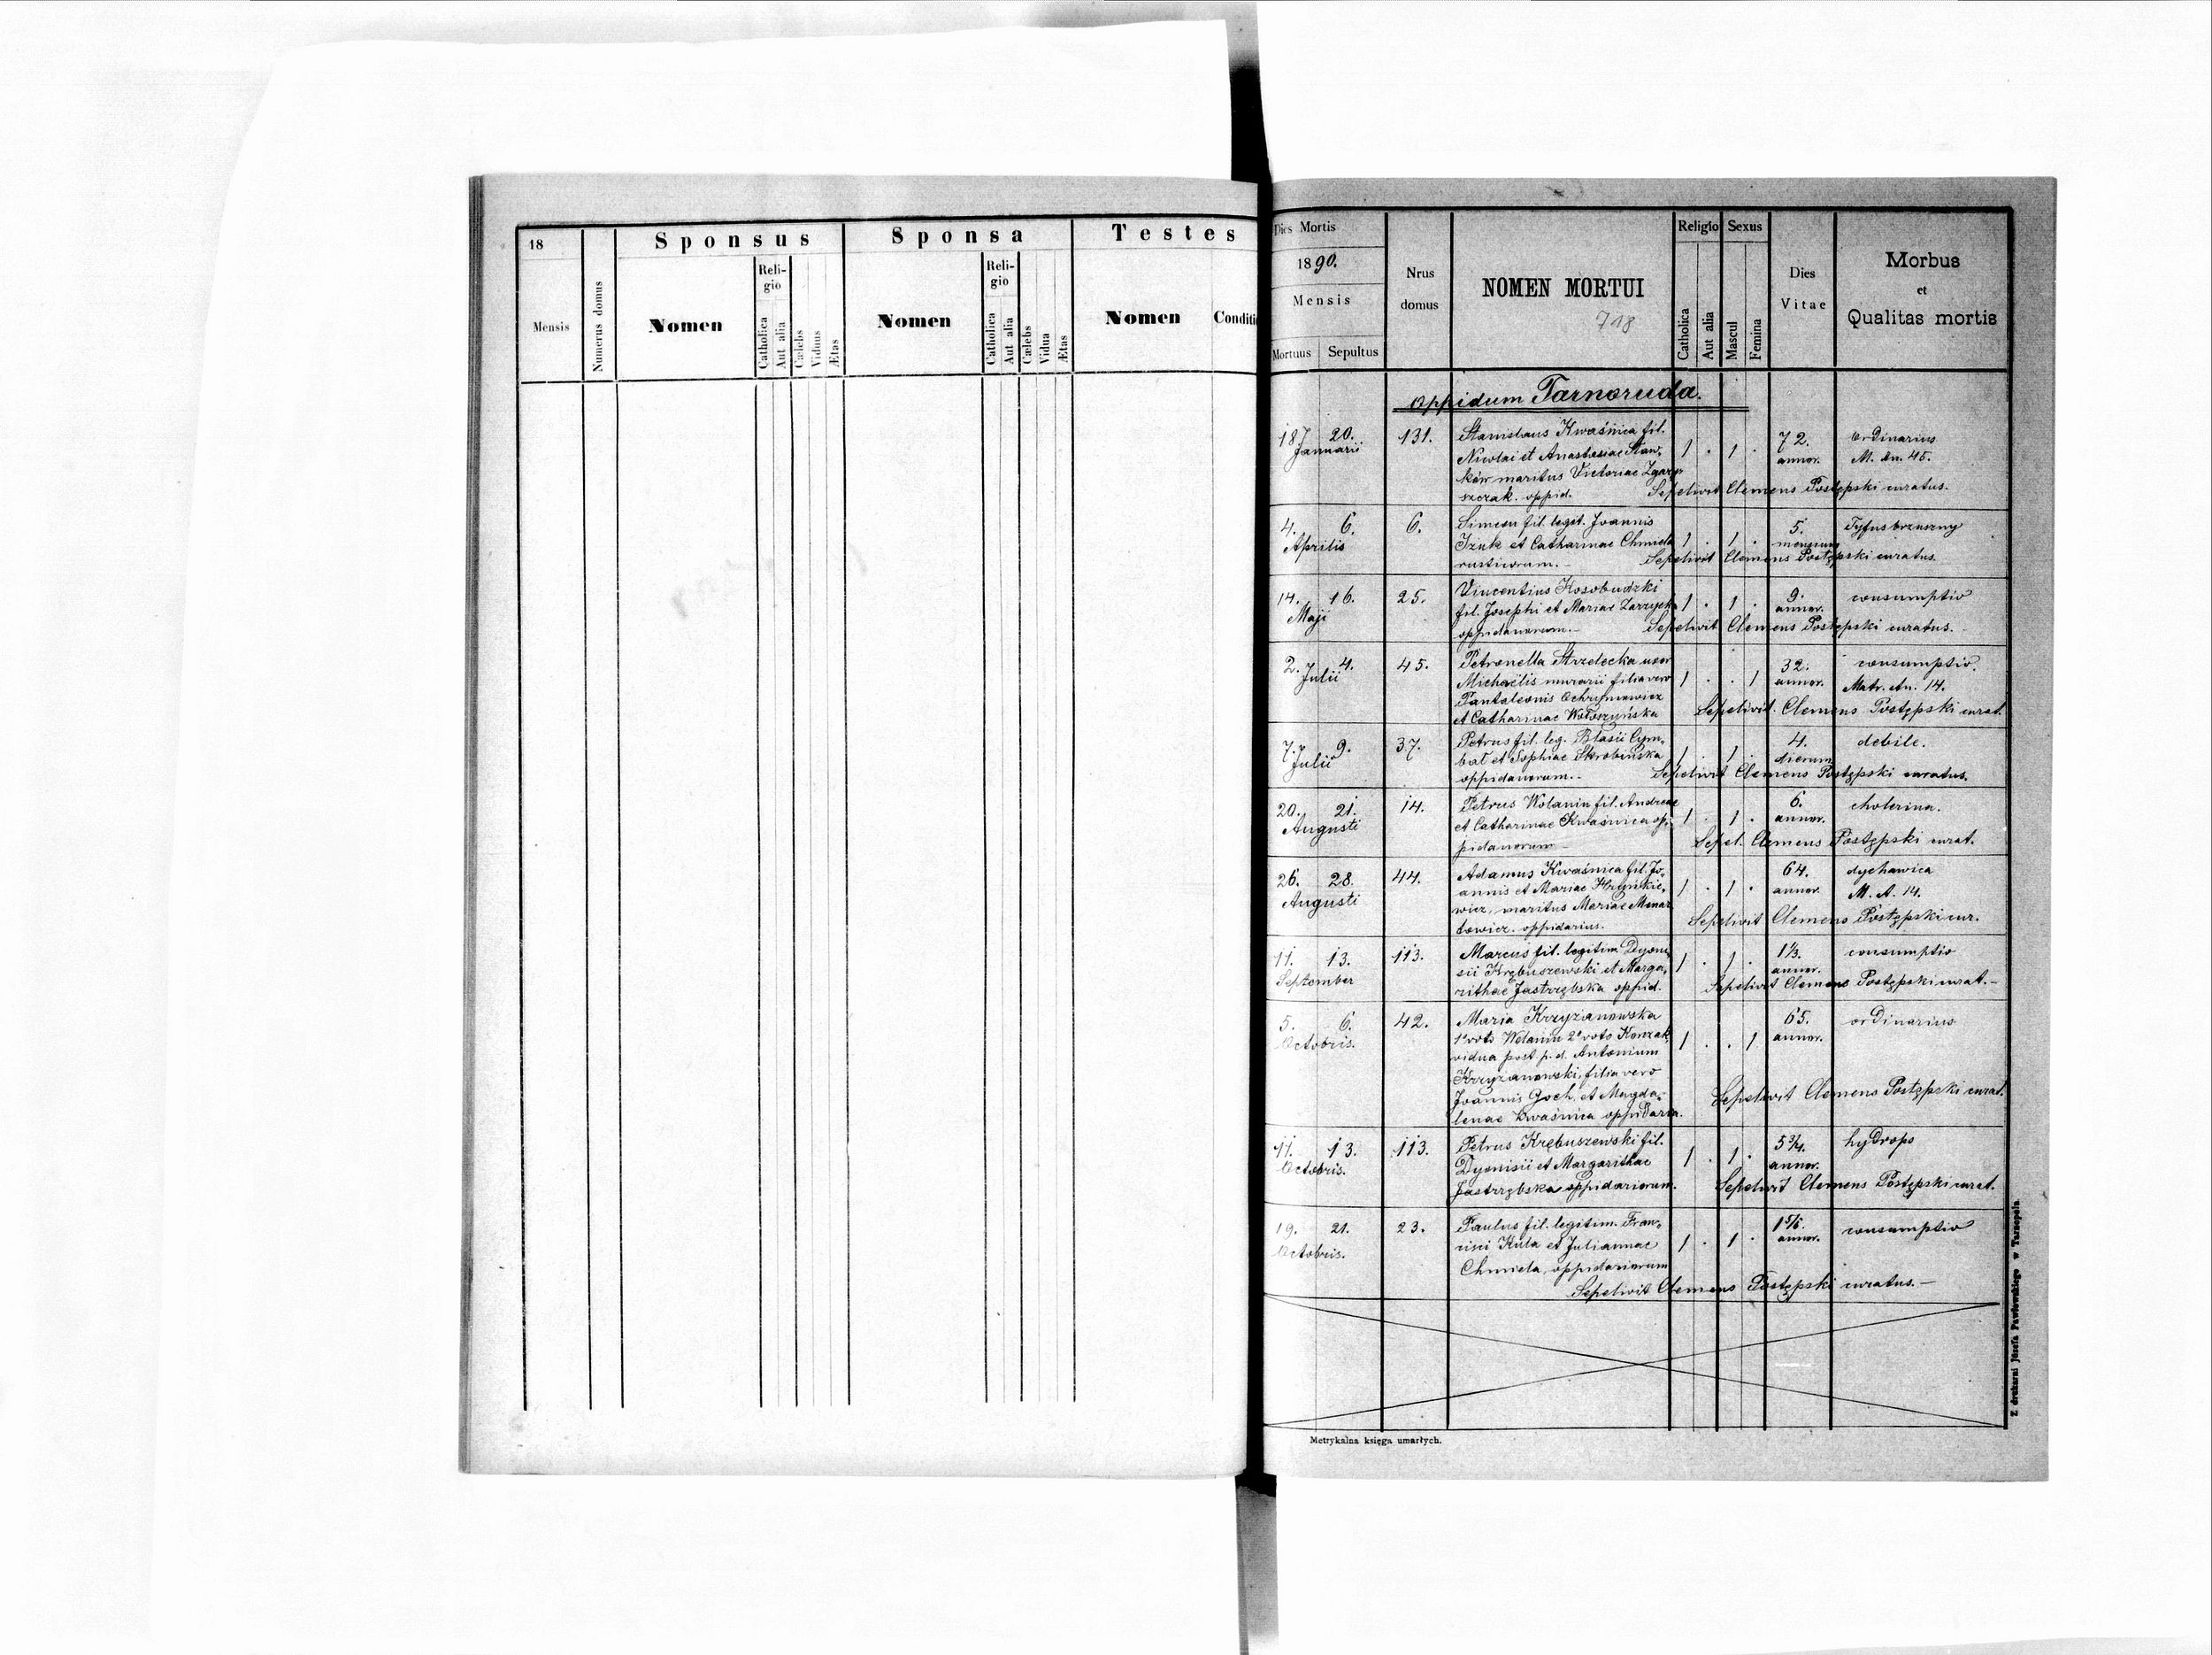 18
Sponsus
Sponsa
Testes
Mensis
Numerus domus
Nomen
Reli-
gio
Catholica
Aut alia
Cælebs
Viduus
Ætas
Nomen
Reli-
gio
Catholica
Aut alia
Cælebs
Vidua
Ætas
Nomen
Conditi
Dies Mortis
1890.
Mensis
Mortuus Sepultus
Nrus
domus
NOMEN MORTUI
718
Religio
Catholica
Aut alia
Sexus
Mascul
Femina
Dies
Vitae
Morbus
et
Qualitas mortis
oppidum Tarnoruda.
187 20. 131. Stanislaus Kwaśnica fil. 72. ordinarius
Januarii Nicolai et Anastasiae Stan= 1 . 1 . annor. M. An. 45.
ków maritus Victoriae
szczak. oppid. Sepelivit Clemens Postępski curatus.
4. 6. 6. Simeon fil. legit. Joannis 5. Tyfus brzuszny
Aprilis Izuk et Catharinae Chmiela 1 . 1 . mensium
rusticorum.- Sepelivit Clemens Postępski curatus.
14. 16. 25. Vincentius Kosobudzki 9. consumptio
Maji fil. Josephi et Mariae Zarzycka 1 . 1 . annor.
oppidanorum.- Sepelivit Clemens Postępski curatus.
2. 4. 45. Petronella Strzelecka uxor 32. consumptio.
Julii Michaëlis murarii filia vero 1 . . 1 annor. Matr. An. 14.
Pantaleonis Ochrymowicz
et Catharinae Wołoszyńska Sepelivit Clemens Postępski curat.
7. 9. 37. Petrus fil. leg. Blasii Cym= 4. debile.
Julii bał et Sophiae Skrobińska 1 . 1 . dierum
oppidanorum.- Sepelivit Clemens Postępski curatus.
20. 21. 14. Petrus Wolanin fil. Andreae 6. cholerina.
Augusti et Catharinae Kwaśnica op= 1 . 1 . annor.
pidanorum- Sepel. Clemens Postępski curat.
26. 28. 44. Adamus Kwaśnica fil. Jo= 64. dychawica
Augusti annis et Mariae Hrynkie= 1 . 1 . annor. M. A. 14.
wicz, maritus Mariae
towicz. oppidarius. Sepelivit Clemens Postępski cur.
11. 13. 113. Marcus fil. legitim. Dyoni= 1⅓. consumptio
September sii Krębuszewski et Marga= 1 . 1 . annor.
rithae Jastrzębska oppid. Sepelivit Clemens Postępski curat.-
5. 6. 42. Maria Krzyżanowska 65. ordinarius
Octobris. 1º voto Wolanin 2º voto Konzak 1 . . 1 annor.
vidua post p. d. Antonium
Krzyżanowski, filia vero
Joannis Goch, et Magda= Sepelivit Clemens Postępski curat.
lenae Kwaśnica oppidaria.
11. 13. 113. Petrus Krębuszewski fil. 5¾. hydrops
Octobris. Dyonisii et Margarithae 1 . 1 . annor.
Jastrzębska oppidariorum. Sepelivit Clemens Postępski curat.
19. 21. 23. Paulus fil. legitim. Fran= consumptio
Octobris. cisci Kula et Juliannae 1 . 1 . annor.
Chmiela, oppidariorum
Sepelivit Clemens Postępski curatus.-
Metrykalna księga umarłych.
Z drukarni Józefa Pawłowskiego w Tarnopolu